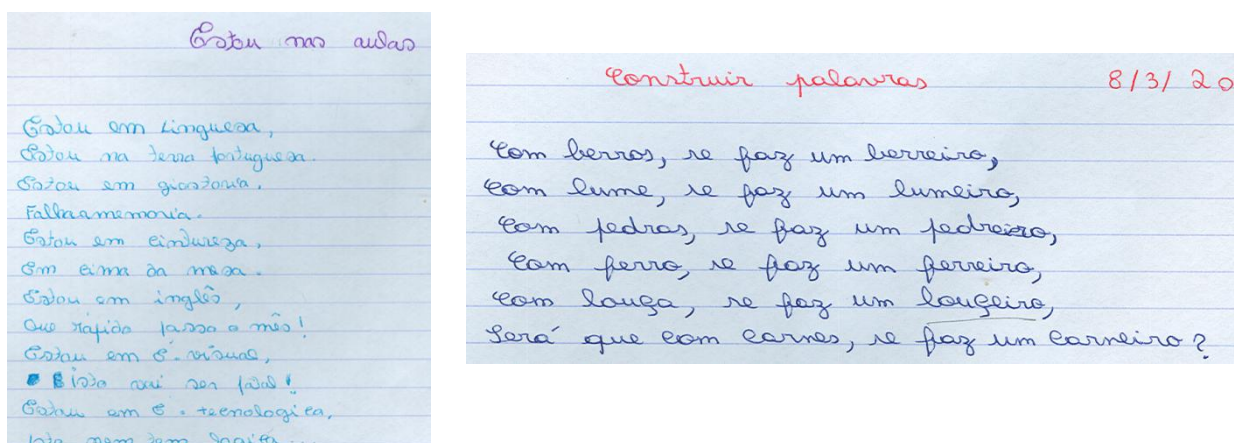 Estou nas aulas
Estou em Linguesa,
Estou na terra portuguesa.
Estou em giastoria,
Falhaamemoria.
Estou em cintureza,
Em cima da mesa.
Estou em inglês,
Que rápido passa o mês!
Estou em E. visual,
isto vai ser fatal!
Estou em E. tecnologica,
Isto nem tem
Construir palavras 8/3/20
Com berros, se faz um berreiro,
Com lume, se faz um lumeiro,
Com pedras, se faz um pedreiro,
Com ferro, se faz um ferreiro,
Com louça, se faz um louçeiro,
Será que com carnes, se faz um carneiro?